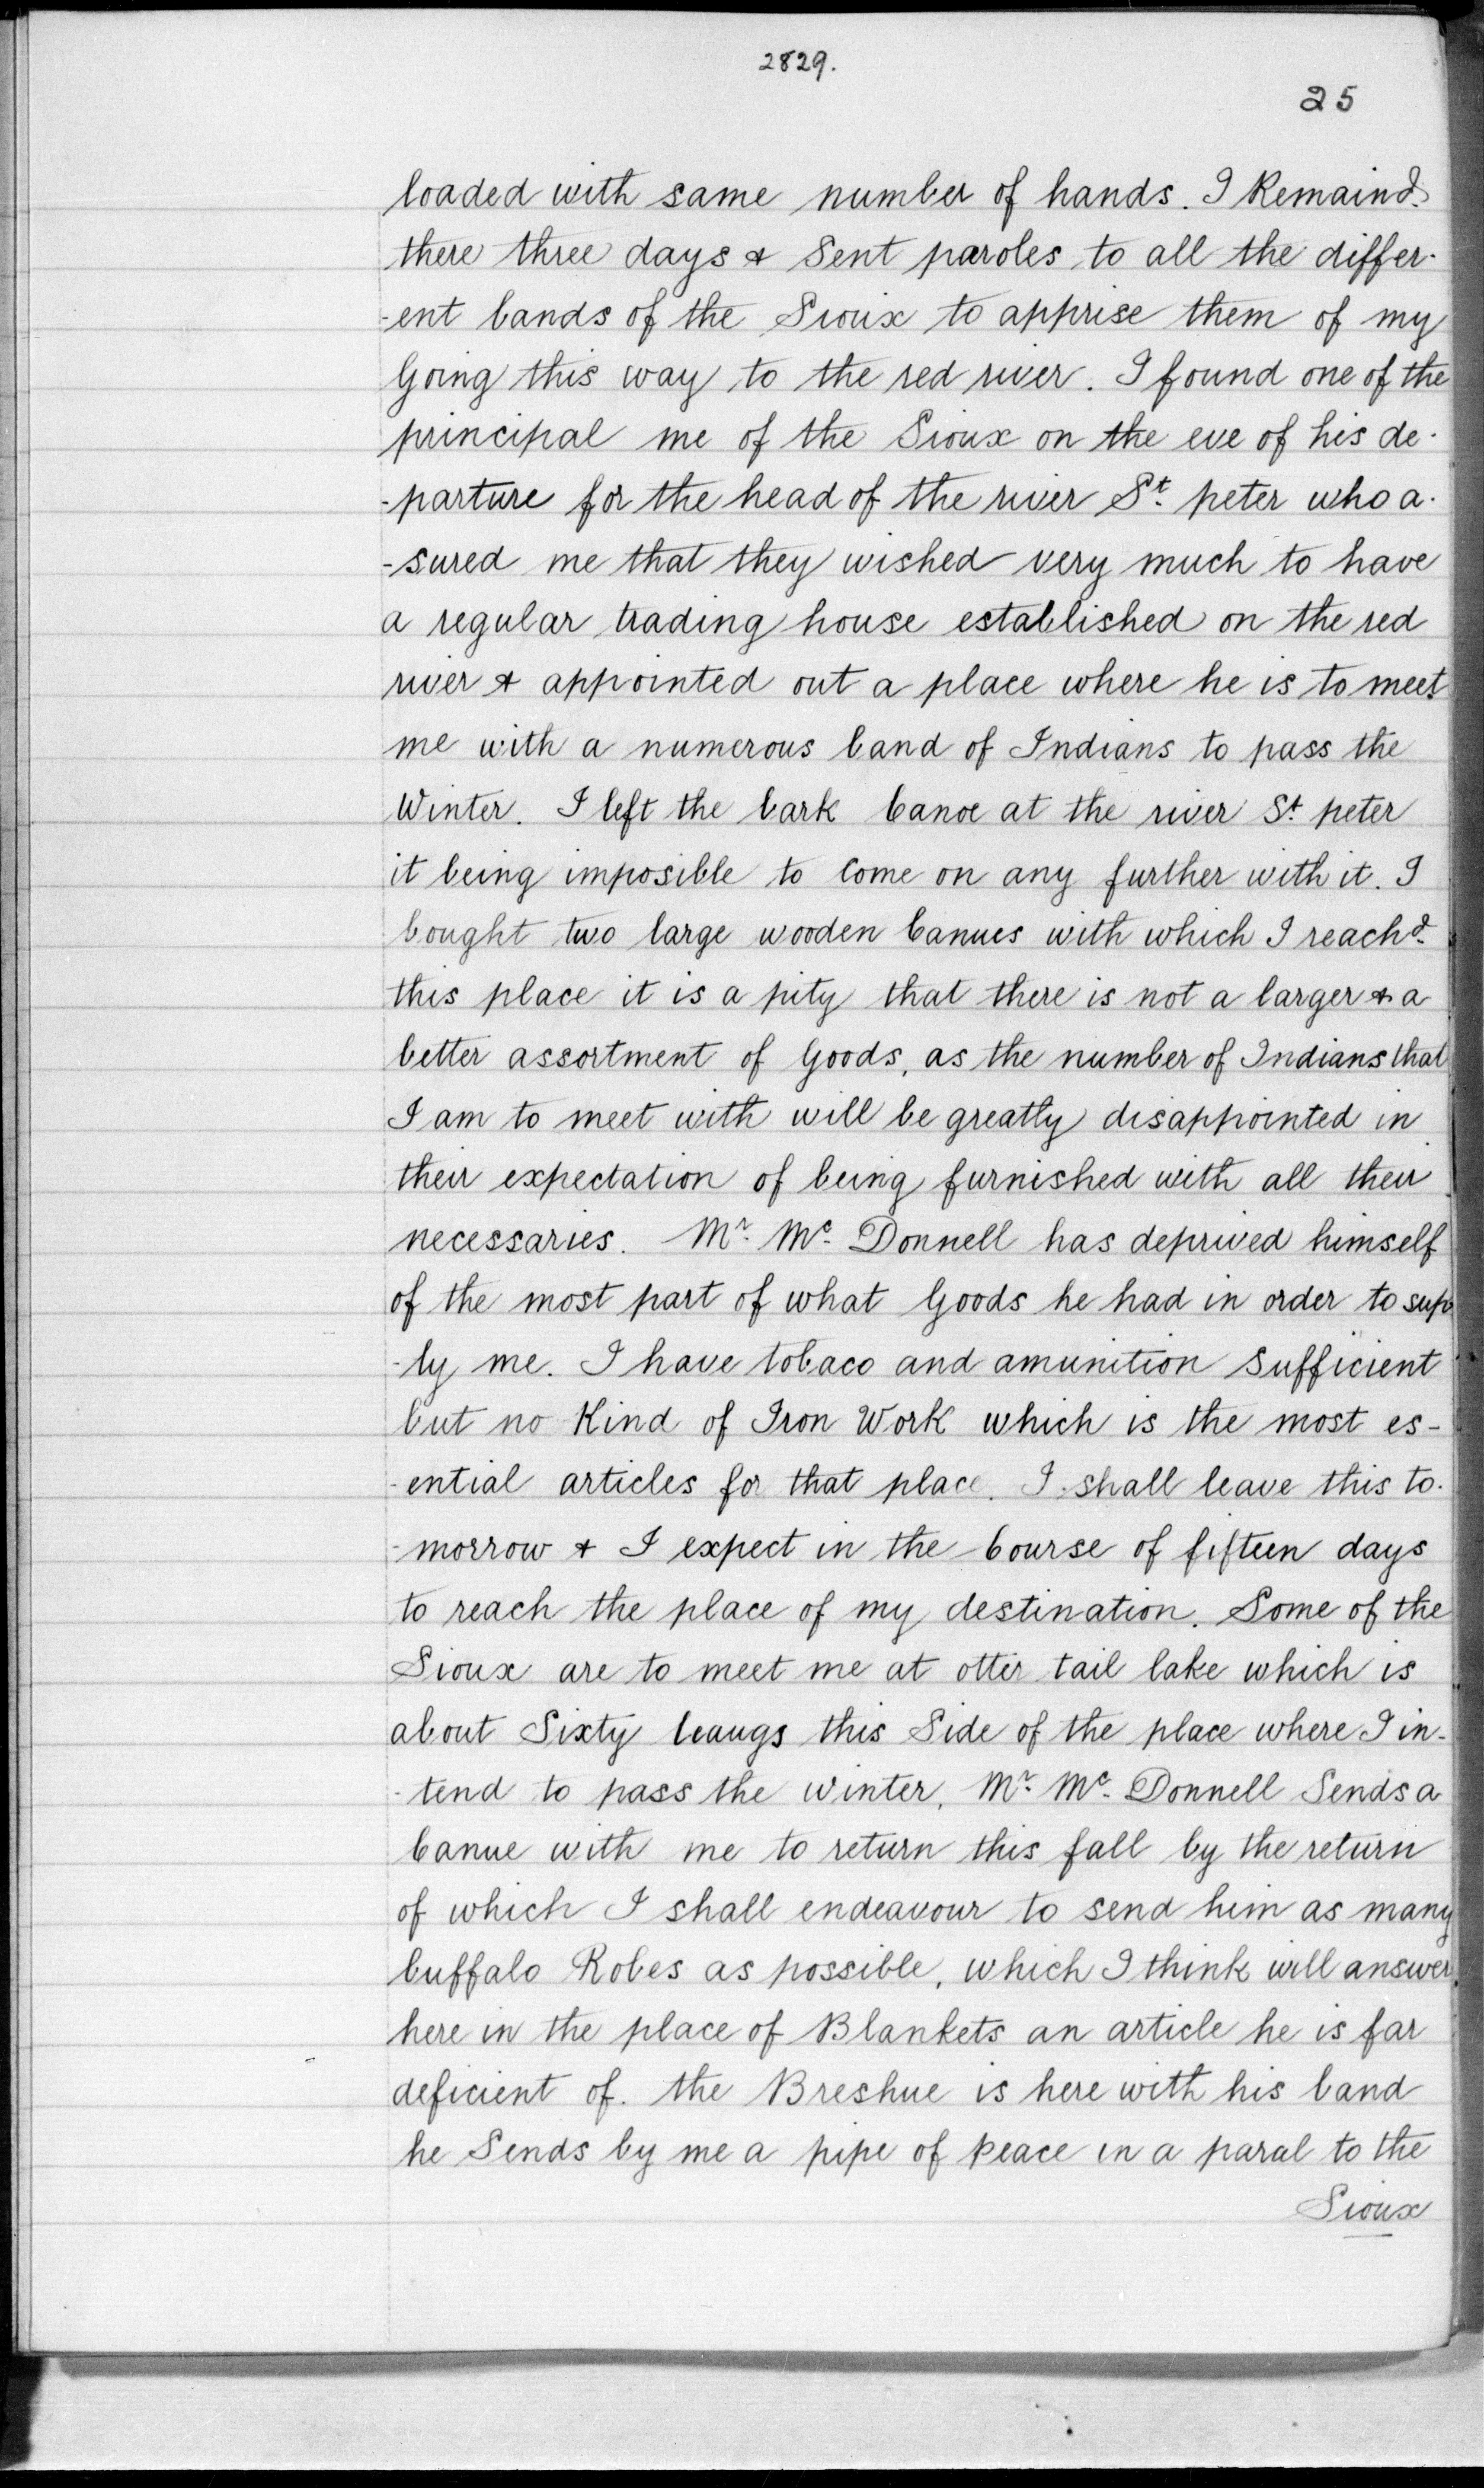 2829.
25
loaded with same number of hands. I Remaind
there three days & Sent paroles to all the differ-
-ent bands of the Sioux to apprise them of my
Going this way to the red river. I found one of the
principal me of the Sioux on the eve of his de-
-parture for the head of the river St. peter who a-
-sured me that they wished very much to have
a regular trading house established on the red
river & appointed out a place where he is to meet
me with a numerous band of Indians to pass the
Winter. I left the bark Canoe at the river St. peter
it being imposible to Come on any further with it. I
bought two large wooden Canues with which I reachd
this place it is a pity that there is not a larger & a
better assortment of Goods, as the number of Indians that
I am to meet with will be greatly disappointed in
their expectation of being furnished with all their
necessaries. Mr. Mc. Donnell has deprived himself
of the most part of what Goods he had in order to sup
-ly me. I have tobaco and amunition Sufficient
but no Kind of Iron Work which is the most es-
-ential articles for that place. I shall leave this to-
-morrow & I expect in the Course of fifteen days
to reach the place of my destination. Some of the
Sioux are to meet me at otter tail lake which is
about Sixty leaugs this Side of the place where I in-
-tend to pass the Winter, Mr. Mc. Donnell Sends a
Canue with me to return this fall by the return
of which I shall endeavour to send him as many
buffalo Robes as possible, which I think will answer
here in the place of Blankets an article he is far
deficient of. the Breshue is here with his band
he Sends by me a pipe of peace in a paral to the
Sioux